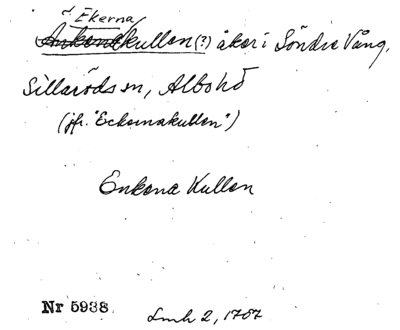 Ekerna
Ankonekullen (?) åker i Söndre Vång,
Sillaröds sn, Albo hd
(jfr. "Eckornakullen")
Enkona Kullen
Nr 5938
Lmh 2, 1707